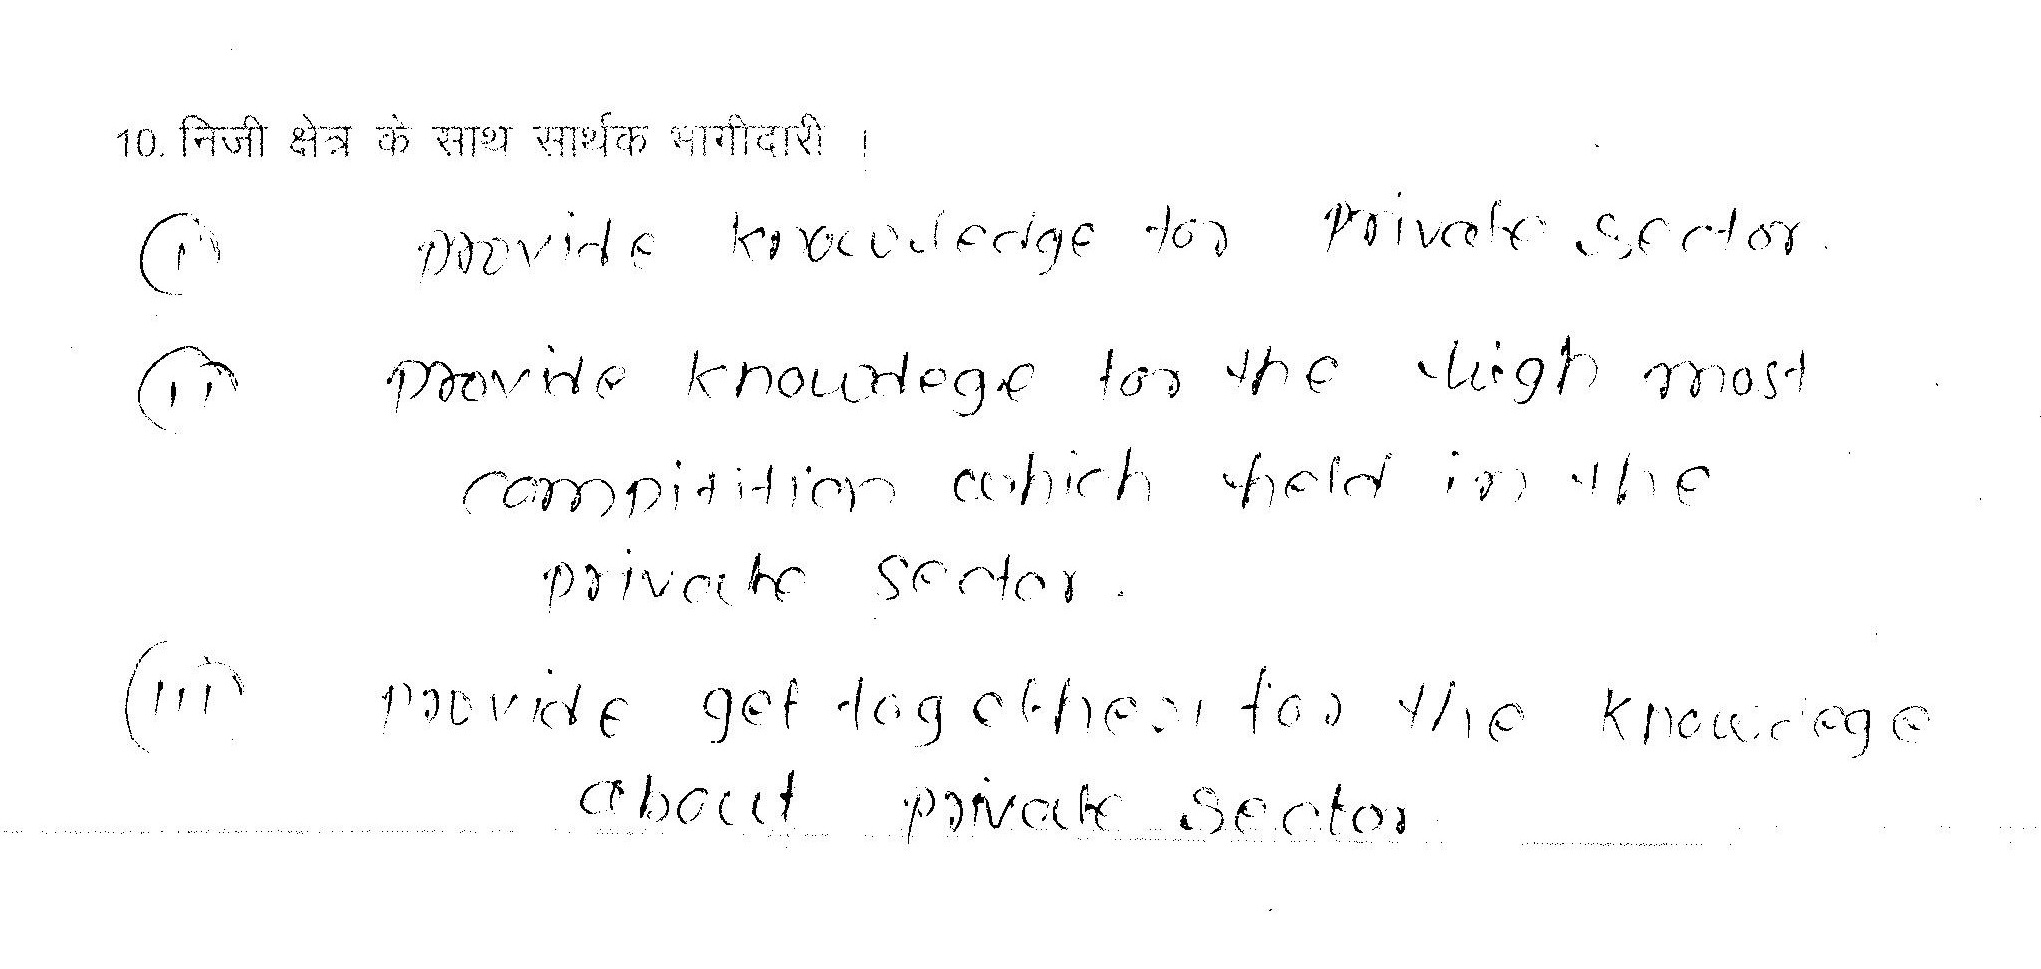 10. निजी क्षेत्र के साथ सार्थक भागीदारी ।
(i) provide knowledge for private sector.
(ii) provide knowledege for the high most
compitition which held in the
private sector.
(iii) provide get together for the knowledege
about private sector